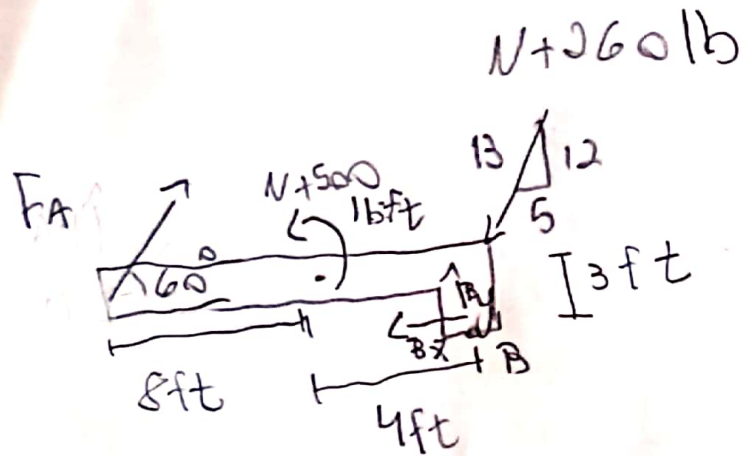 N+260 lb
13
12
5
FA
N+500
lbft
60°
3ft
Bx
B
8ft
4ft